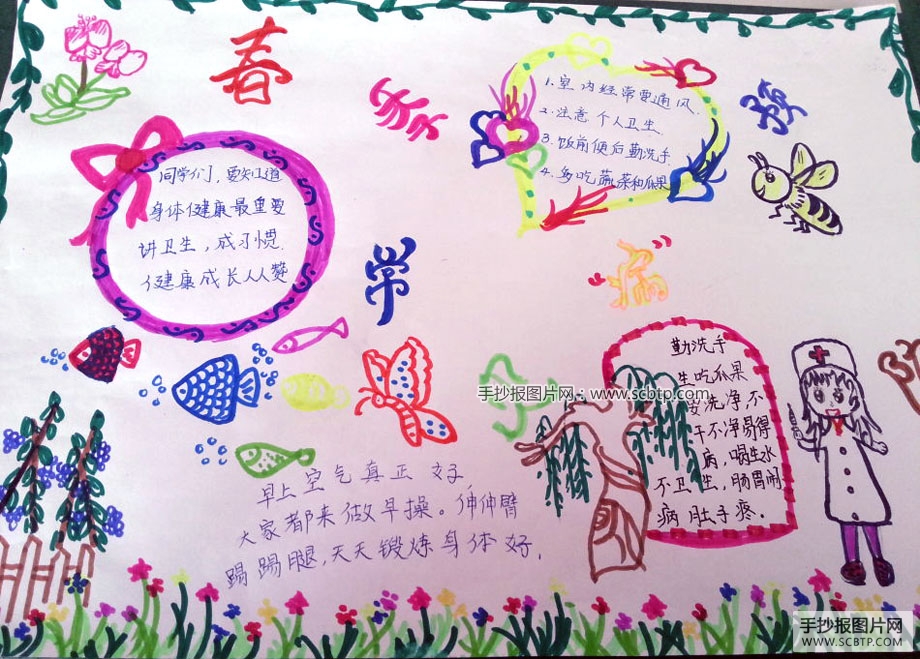 春
季
预
常
病
同学们,要知道
身体健康最重要
讲卫生,成习惯.
健康成长人人赞
1.室内经常要通风.
2.注意个人卫生.
3.饭前便后勤洗手
4.多吃蔬菜和瓜果
勤洗手
生吃瓜果
要洗净,不
干不净易得
病,喝生水
不卫生,肠胃闹
病肚子疼.
早上空气真正好,
大家都来做早操。伸伸臂
踢踢腿,天天锻炼身体好.
手抄报图片网:www.scbtp.com
手抄报图片网
WWW.SCBTP.COM